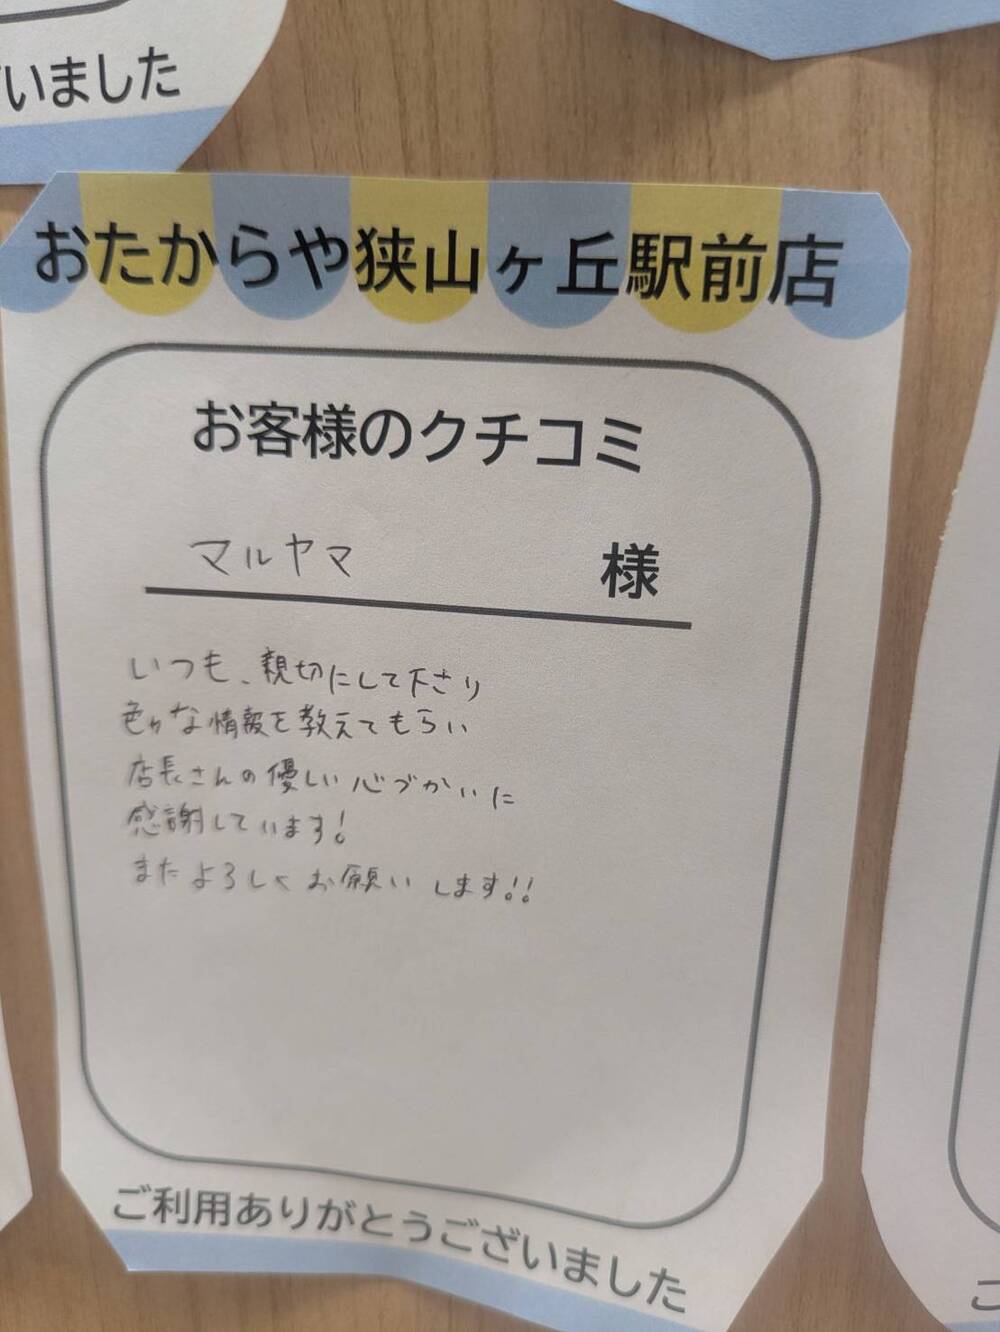 いました
おたからや狭山ヶ丘駅前店
お客様のクチコミ
マルヤマ 様
いつも、親切にして下さり
色々な情報を教えてもらい
店長さんの優しい心づかいに
感謝しています!
またよろしくお願いします!!
ご利用ありがとうございました